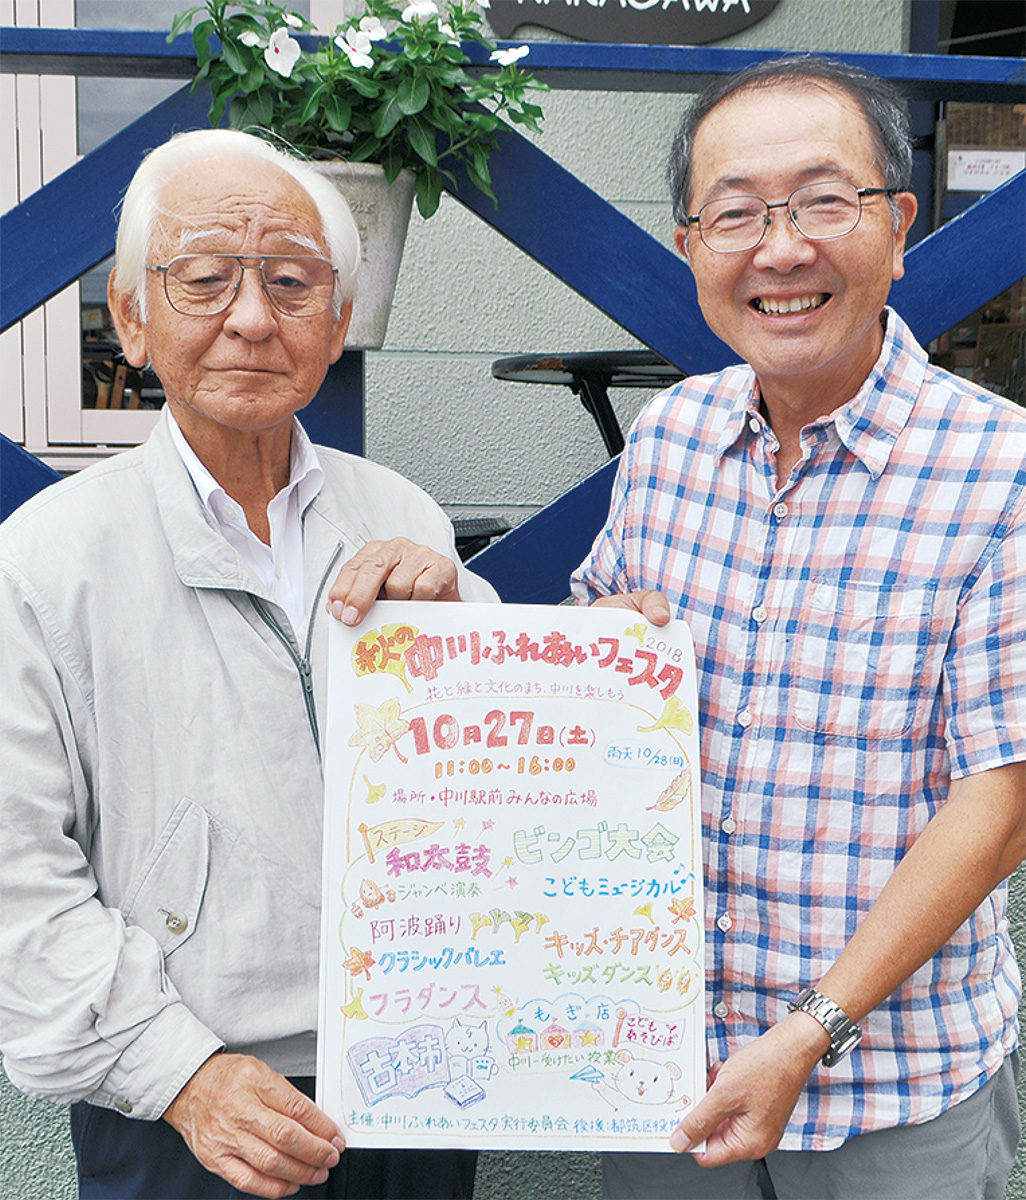 NAKAGAWA
秋の中川ふれあいフェスタ
2018
花と緑と文化のまち、中川を楽しもう
10月27日(土)
雨天10/28(日)
11:00~16:00
場所・中川駅前みんなの広場
ステージ
和太鼓
ビンゴ大会
ジャンベ演奏
こどもミュージカル
阿波踊り
キッズ・チアダンス
クラシックバレエ
キッズダンス
フラダンス
もぎ店
こどもあそびば
古本市
中川一受けたい授業
主催:中川ふれあいフェスタ実行委員会 後援:都筑区役所